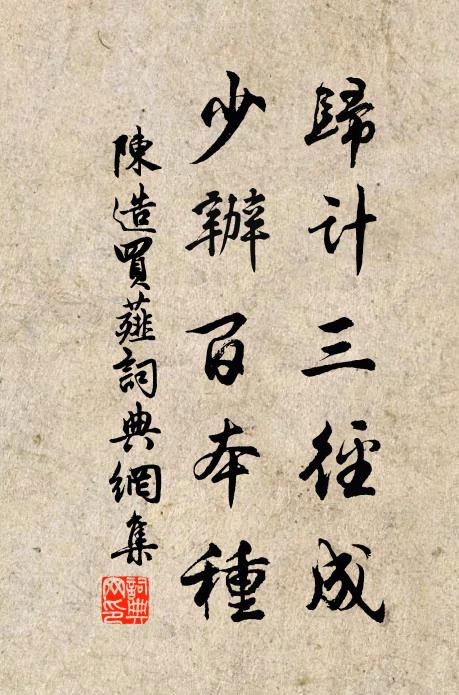 歸計三徑成
少辦百本種
陳造買薤詞典網集
詞典網印